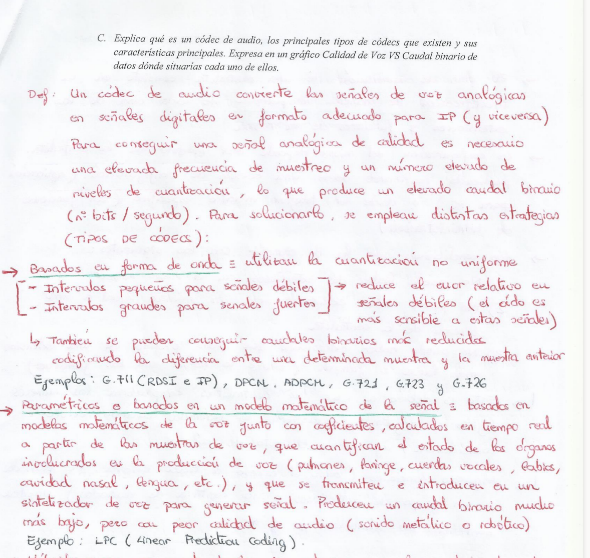 C. Explica qué es un códec de audio, los principales tipos de códecs que existen y sus
características principales. Expresa en un gráfico Calidad de Voz VS Caudal binario de
datos dónde situarías cada uno de ellos.
Def: Un códec de audio convierte las señales de voz analógicas
en señales digitales en formato adecuado para IP (y viceversa)
Para conseguir una señal analógica de calidad es necesario
una elevada frecuencia de muestreo y un número elevado de
niveles de cuantización, lo que produce un elevado caudal binario
(nº bits / segundo). Para solucionarlo, se emplean distintas estrategias
(TIPOS DE CÓDECS):
→ Basados en forma de onda ≡ utilizan la cuantización no uniforme
- Intervalos pequeños para señales débiles → reduce el error relativo en
- Intervalos grandes para señales fuertes señales débiles (el oído es
más sensible a estas señales)
↳ También se pueden conseguir caudales binarios más reducidos
codificando la diferencia entre una determinada muestra y la muestra anterior
Ejemplos: G.711 (RDSI e IP), DPCM, ADPCM, G.721, G.723 y G.726
→ Paramétricos o basados en un modelo matemático de la señal ≡ basados en
modelos matemáticos de la voz junto con coeficientes, calculados en tiempo real
a partir de las muestras de voz, que cuantifican el estado de los órganos
involucrados en la producción de voz (pulmones, faringe, cuerdas vocales, labios,
cavidad nasal, lengua, etc.), y que se transmiten e introducen en un
sintetizador de voz para generar señal. Producen un caudal binario mucho
más bajo, pero con peor calidad de audio (sonido metálico o robótico)
Ejemplo: LPC (Linear Prediction Coding).